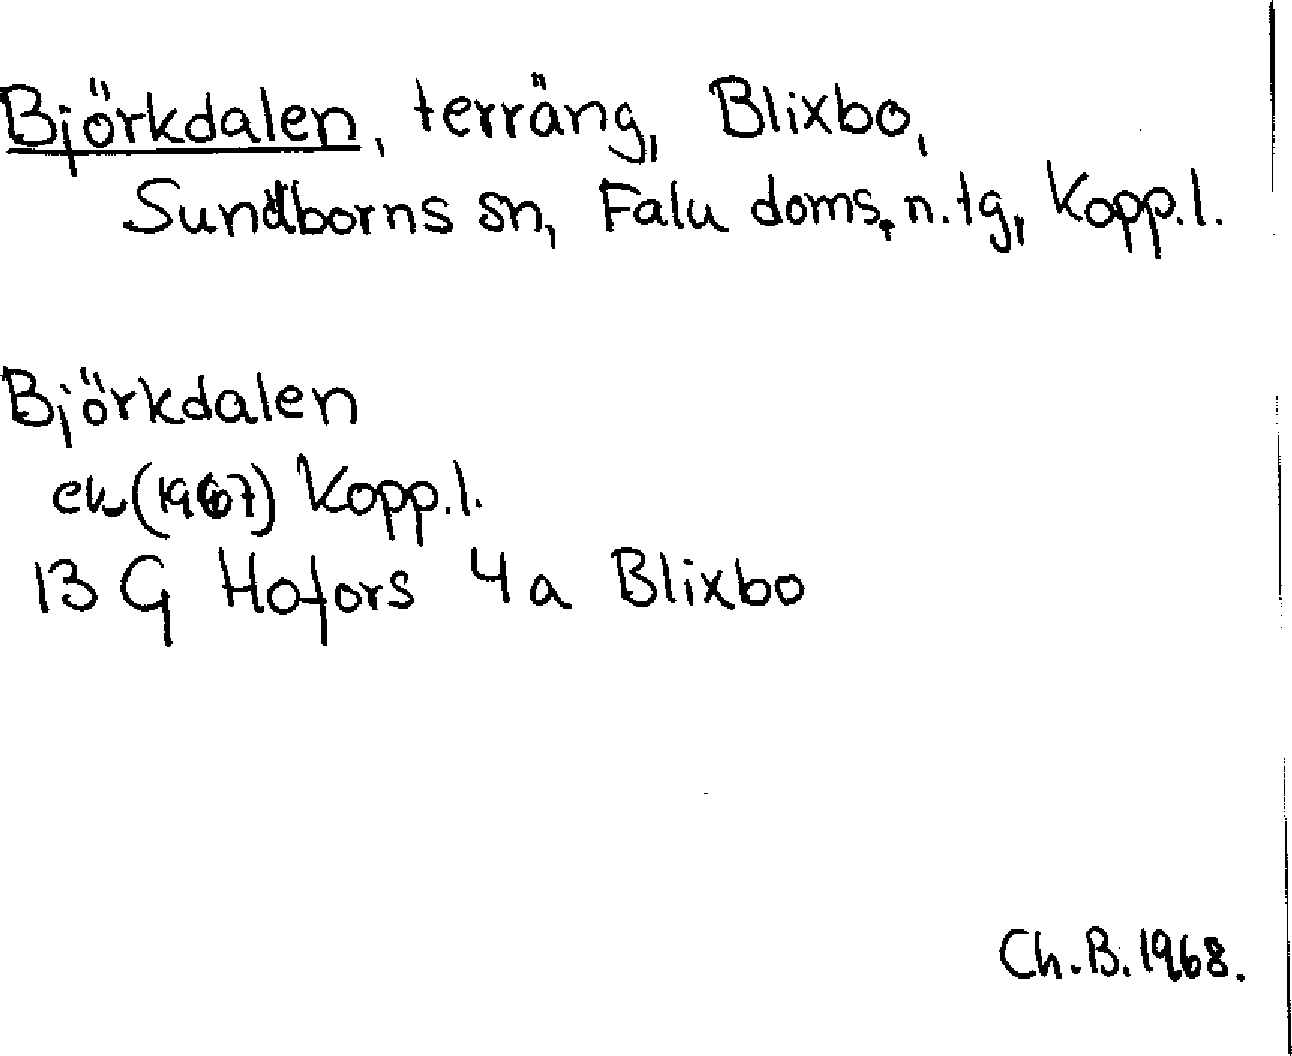 Björkdalen, terräng, Blixbo,
Sundborns sn, Falu doms. n. tg, Kopp.l.
Björkdalen
ek (1967) Kopp.l.
13 G Hofors 4 a Blixbo
Ch.B. 1968.